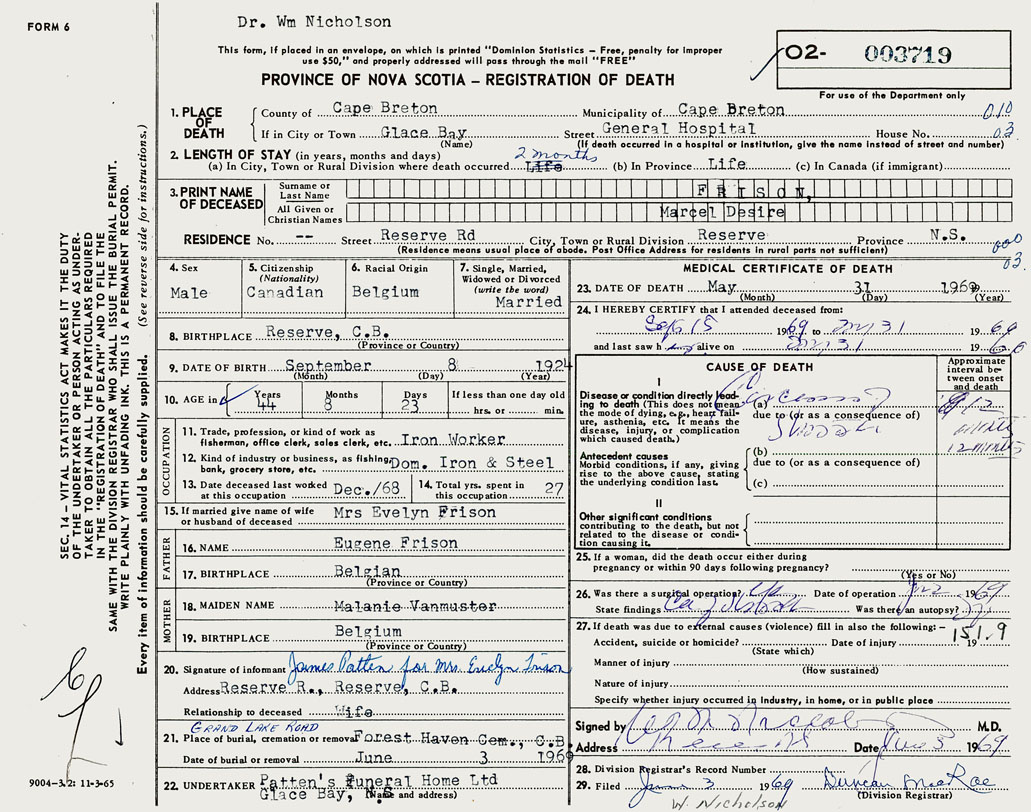 FORM 6
Dr. Wm Nicholson
This form, if placed in an envelope, on which is printed "Dominion Statistics – Free, penalty for improper
use $50," and properly addressed will pass through the mail "FREE"
PROVINCE OF NOVA SCOTIA – REGISTRATION OF DEATH
02- 003719
For use of the Department only
SEC. 14 – VITAL STATISTICS ACT MAKES IT THE DUTY
OF THE UNDERTAKER OR PERSON ACTING AS UNDER-
TAKER TO OBTAIN ALL THE PARTICULARS REQUIRED
IN THE "REGISTRATION OF DEATH" AND TO FILE THE
SAME WITH THE DIVISION REGISTRAR WHO SHALL ISSUE THE BURIAL PERMIT.
WRITE PLAINLY WITH UNFADING INK. THIS IS A PERMANENT RECORD.
Every item of information should be carefully supplied. (See reverse side for instructions.)
1. PLACE OF DEATH
County of Cape Breton Municipality of Cape Breton 010
If in City or Town Glace Bay Street General Hospital House No. 03
(Name) (If death occurred in a hospital or institution, give the name instead of street and number)
2. LENGTH OF STAY (in years, months and days) 2 months
(a) In City, Town or Rural Division where death occurred Life (b) In Province Life (c) In Canada (if immigrant)
3. PRINT NAME OF DECEASED
Surname or Last Name FRISON,
All Given or Christian Names Marcel Desire
RESIDENCE No. -- Street Reserve Rd City, Town or Rural Division Reserve Province N.S. 000
(Residence means usual place of abode. Post Office Address for residents in rural parts not sufficient) 03.
4. Sex Male
5. Citizenship (Nationality) Canadian
6. Racial Origin Belgium
7. Single, Married, Widowed or Divorced (write the word) Married
8. BIRTHPLACE Reserve, C.B.
(Province or Country)
9. DATE OF BIRTH September 8 1924
(Month) (Day) (Year)
10. AGE in Years 44 Months 8 Days 23 If less than one day old hrs. or min.
OCCUPATION
11. Trade, profession, or kind of work as
fisherman, office clerk, sales clerk, etc. Iron Worker
12. Kind of industry or business, as fishing,
bank, grocery store, etc. Dom. Iron & Steel
13. Date deceased last worked at this occupation Dec./68 14. Total yrs. spent in this occupation 27
15. If married give name of wife or husband of deceased Mrs Evelyn Frison
FATHER
16. NAME Eugene Frison
17. BIRTHPLACE Belgian
(Province or Country)
MOTHER
18. MAIDEN NAME Malanie Vanmuster
19. BIRTHPLACE Belgium
(Province or Country)
20. Signature of informant James Patten for Mrs. Evelyn Frison
Address Reserve R., Reserve, C.B.
Relationship to deceased Wife
GRAND LAKE ROAD
21. Place of burial, cremation or removal Forest Haven Cem., C.B.
Date of burial or removal June 3 1969
22. UNDERTAKER Patten's Funeral Home Ltd
Glace Bay, N.S. (Name and address)
9004-3.2: 11-3-65
MEDICAL CERTIFICATE OF DEATH
23. DATE OF DEATH May 31 1969
(Month) (Day) (Year)
24. I HEREBY CERTIFY that I attended deceased from:
Sept 15 1969 to May 31 1969
and last saw h alive on May 31 1969
CAUSE OF DEATH
Approximate interval between onset and death
I
Disease or condition directly leading
to death (This does not mean
the mode of dying, e.g., heart failure,
asthenia, etc. It means the
disease, injury, or complication
which caused death.)
(a)
due to (or as a consequence of)
Antecedent causes
Morbid conditions, if any, giving
rise to the above cause, stating
the underlying condition last.
(b)
due to (or as a consequence of)
(c)
12 months
II
Other significant conditions
contributing to the death, but not
related to the disease or condition
causing it.
25. If a woman, did the death occur either during
pregnancy or within 90 days following pregnancy?
(Yes or No)
26. Was there a surgical operation? Date of operation 1969
State findings Was there an autopsy?
27. If death was due to external causes (violence) fill in also the following: – 151.9
Accident, suicide or homicide? Date of injury 19
(State which)
Manner of injury
(How sustained)
Nature of injury
Specify whether injury occurred in industry, in home, or in public place
Signed by M.D.
Address Date June 3 1969
28. Division Registrar's Record Number
29. Filed June 3 1969 Duncan MacRae
(Division Registrar)
W. Nicholson